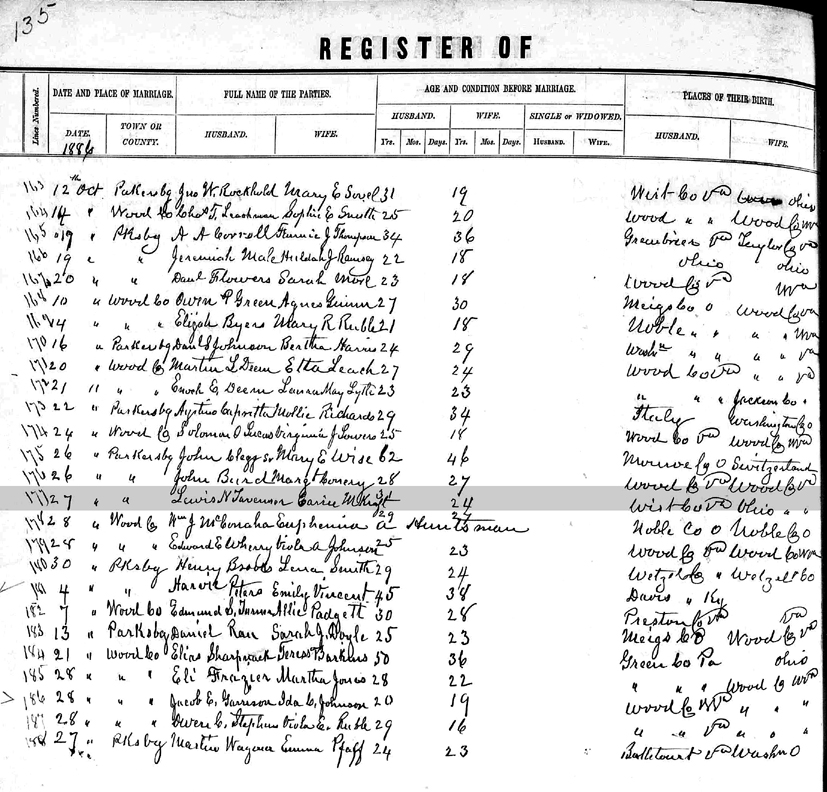 135
REGISTER OF
Lines Numbered. DATE AND PLACE OF MARRIAGE. FULL NAME OF THE PARTIES. AGE AND CONDITION BEFORE MARRIAGE. PLACES OF THEIR BIRTH.
HUSBAND. WIFE. SINGLE OR WIDOWED.
DATE. TOWN OR COUNTY. HUSBAND. WIFE. Yrs. Mos. Days. Yrs. Mos. Days. HUSBAND. WIFE. HUSBAND. WIFE.
1886
163 12th Oct Parkersbg Jno W. Rockhold Mary E 31 19 Wirt Co Va Ohio
164 14 " Wood Co Chas T. Leachman Sophie E Smith 25 20 Wood " " Wood Co
165 19 " PKsby A A Corroll J Thompson 34 36 Greenbrier Va Taylor Co Va
166 19 " " Jeremiah Male Huldah J Ramsey 22 18 Ohio Ohio
167 20 " " Danl Flowers Sarah 23 18 Wood Co Wva
168 10 " Wood Co Owen P Green Agnes Guinn 27 30 Meigs Co O Wood Co Va
169 14 " " " Elizah Byers Mary R Ruble 21 18 Noble " " " " Wva
170 16 " Parkersby Danl S Johnson Bertha Harris 24 29 Washn " " " " Va
171 20 " Wood Co Martin L Deem Etta Leach 27 24 Wood Co Va " " Va
172 21 " " " Enoch E. Deem Laura May Lytle 23 23 " " " Jackson Co "
173 22 " Parkersby Mollie Richards 29 34 Italy Washington Co O
174 24 " Wood Co Solomon O Lucas Virginia J Lowers 25 18 Wood Co Va Wood Co Wva
175 26 " Parkersby John Clegg Sr Mary E Wise 62 46 Monroe Co O Switzerland
176 26 " " John Burd Margt 28 27 Wood Co Va Wood Co Va
177 27 " " Lewis N Tavenner Carrie M 24 Wirt Co Va Ohio " "
178 28 " Wood Co Wm J McConaha Euphemia A Huntsman 29 27 Noble Co O Noble Co O
179 28 " " " Edward E Wherry Viola A Johnson 25 23 Wood Co Va Wood Co Wva
180 30 " PKsby Henry Lena Smith 29 24 Wetzel Co " Wetzel Co
181 4 " " Peters Emily Vincent 45 38 Davis " Ky
182 7 " Wood Co Edmund S, Turner Allie Padgett 30 28 Preston Co Va Va
183 13 " Parksby Daniel Rau Sarah J, Doyle 25 23 Meigs Co O Wood Co Va
184 21 " Wood Co Elias Sharpnack 50 36 Green Co Pa Ohio
185 28 " " " Eli Frazier Martha Jones 28 22 " " " Wood Co Wva
186 28 " " " Jacob E, Garrison Ida C, Johnson 20 19 Wood Co Wva " " "
187 28 " " " Owen C, Stephens Viola E. Ruble 29 16 " " Va " " "
188 27 " PKsby Martin Wagoner Emma Pfaff 24 23 Va Washn O